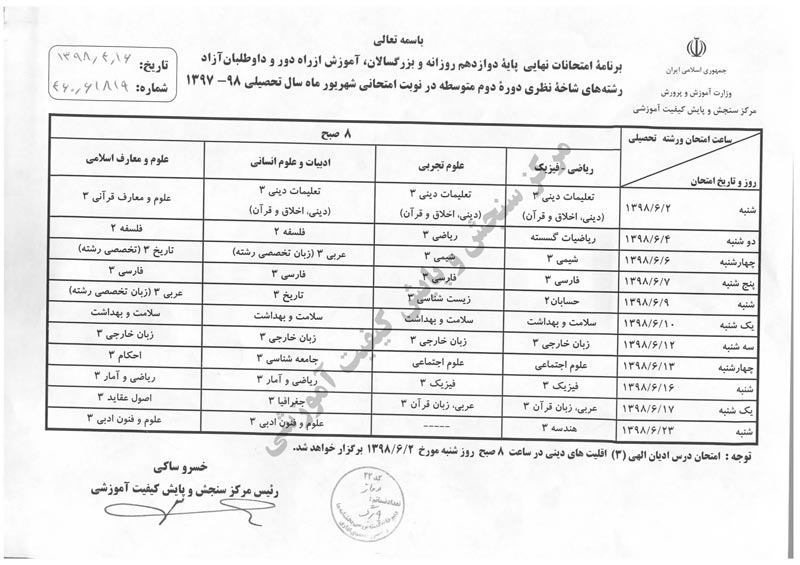 باسمه تعالی
جمهوری اسلامی ایران
وزارت آموزش و پرورش
مرکز سنجش و پایش کیفیت آموزشی
برنامهٔ امتحانات نهایی پایهٔ دوازدهم روزانه و بزرگسالان، آموزش ازراه دور و داوطلبان آزاد
رشته‌های شاخهٔ نظری دورهٔ دوم متوسطه در نوبت امتحانی شهریور ماه سال تحصیلی ۹۸- ۱۳۹۷
تاریخ: ۱۳۹۸,۲,۱۶
شماره: ۴۶۰,۶۱۸۱۹
ساعت امتحان ورشته تحصیلی
روز و تاریخ امتحان
۸ صبح
ریاضی - فیزیک علوم تجربی ادبیات و علوم انسانی علوم و معارف اسلامی
شنبه ۱۳۹۸/۶/۲ تعلیمات دینی ۳ (دینی، اخلاق و قرآن) تعلیمات دینی ۳ (دینی، اخلاق و قرآن) تعلیمات دینی ۳ (دینی، اخلاق و قرآن) علوم و معارف قرآنی ۳
دو شنبه ۱۳۹۸/۶/۴ ریاضیات گسسته ریاضی ۳ فلسفه ۲ فلسفه ۲
چهارشنبه ۱۳۹۸/۶/۶ شیمی ۳ شیمی ۳ عربی ۳ (زبان تخصصی رشته) تاریخ ۳ (تخصصی رشته)
پنج شنبه ۱۳۹۸/۶/۷ فارسی ۳ فارسی ۳ فارسی ۳ فارسی ۳
شنبه ۱۳۹۸/۶/۹ حسابان۲ زیست شناسی ۳ تاریخ ۳ عربی ۳ (زبان تخصصی رشته)
یک شنبه ۱۳۹۸/۶/۱۰ سلامت و بهداشت سلامت و بهداشت سلامت و بهداشت سلامت و بهداشت
سه شنبه ۱۳۹۸/۶/۱۲ زبان خارجی ۳ زبان خارجی ۳ زبان خارجی ۳ زبان خارجی ۳
چهارشنبه ۱۳۹۸/۶/۱۳ علوم اجتماعی علوم اجتماعی جامعه شناسی ۳ احکام ۳
شنبه ۱۳۹۸/۶/۱۶ فیزیک ۳ فیزیک ۳ ریاضی و آمار ۳ ریاضی و آمار ۳
یک شنبه ۱۳۹۸/۶/۱۷ عربی، زبان قرآن ۳ عربی، زبان قرآن ۳ جغرافیا ۳ اصول عقاید ۳
شنبه ۱۳۹۸/۶/۲۳ هندسه ۳ ----- علوم و فنون ادبی ۳ علوم و فنون ادبی ۳
توجه : امتحان درس ادیان الهی (۳) اقلیت های دینی در ساعت ۸ صبح روز شنبه مورخ ۱۳۹۸/۶/۲ برگزار خواهد شد.
خسرو ساکی
رئیس مرکز سنجش و پایش کیفیت آموزشی
مرکز سنجش و پایش کیفیت آموزشی
کد ۲۲